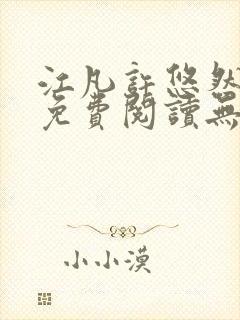 江凡許悠然
免費閱讀無
小小漠